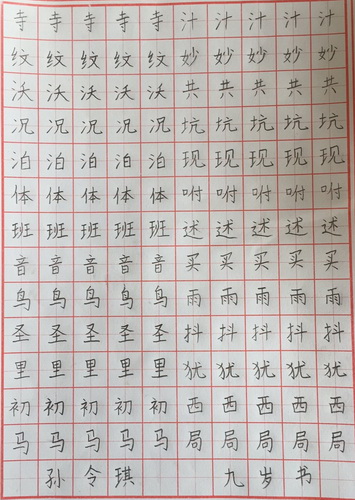 寺寺寺寺寺汁汁汁汁汁
纹纹纹纹纹妙妙妙妙妙
沃沃沃沃沃共共共共共
况况况况况坑坑坑坑坑
泊泊泊泊泊现现现现现
体体体体体咐咐咐咐咐
班班班班班述述述述述
音音音音音买买买买买
鸟鸟鸟鸟鸟雨雨雨雨雨
圣圣圣圣圣抖抖抖抖抖
里里里里里犹犹犹犹犹
初初初初初西西西西西
马马马马马局局局局局
孙令琪 九岁书